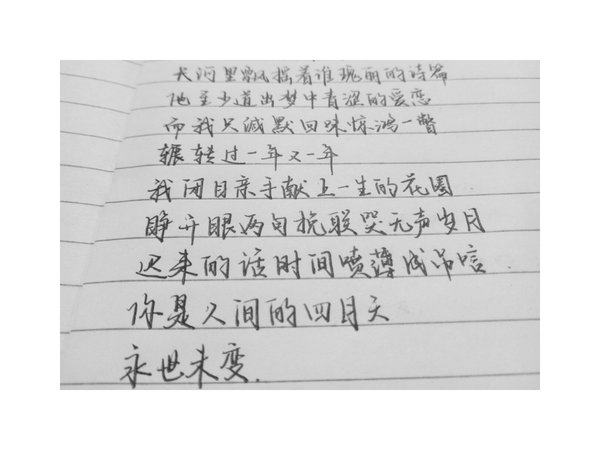 天河里飘摇着谁瑰丽的诗篇
他至少道出梦中青涩的爱恋
而我只缄默回味惊鸿一瞥
辗转过一年又一年
我闭目亲手献上一生的花园
睁开眼两句挽联哭无声岁月
迟来的话时间喷薄成吊唁
你是人间的四月天
永世未变.